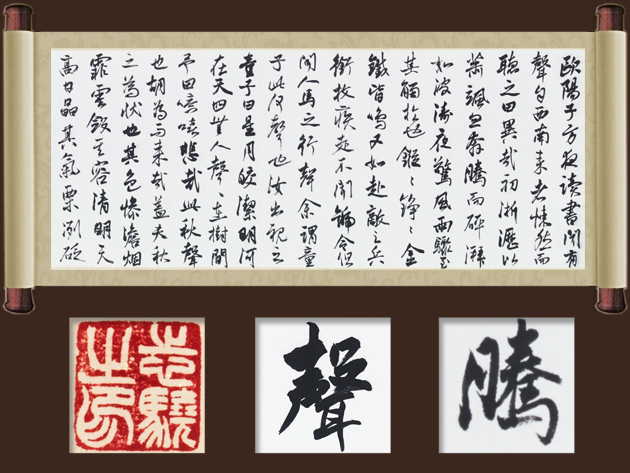 歐陽子方夜读書聞有
聲自西南来者悚然而
聽之曰異哉初淅瀝以
蕭颯忽奔騰而砰湃
如波涛夜驚風雨驟至
其觸於物也鏦〻錚〻金
鐵皆鳴又如赴敵之兵
銜枚疾走不聞號令但
聞人馬之行聲余謂童
子此何聲也汝出視之
童子曰星月皎潔明河
在天四無人聲在樹間
予曰噫嘻悲哉此秋聲
也胡為而来哉蓋夫秋
之為狀也其色慘澹烟
霏雲斂其容清明天
高日晶其氣栗冽砭
騰
聲
志驍之印